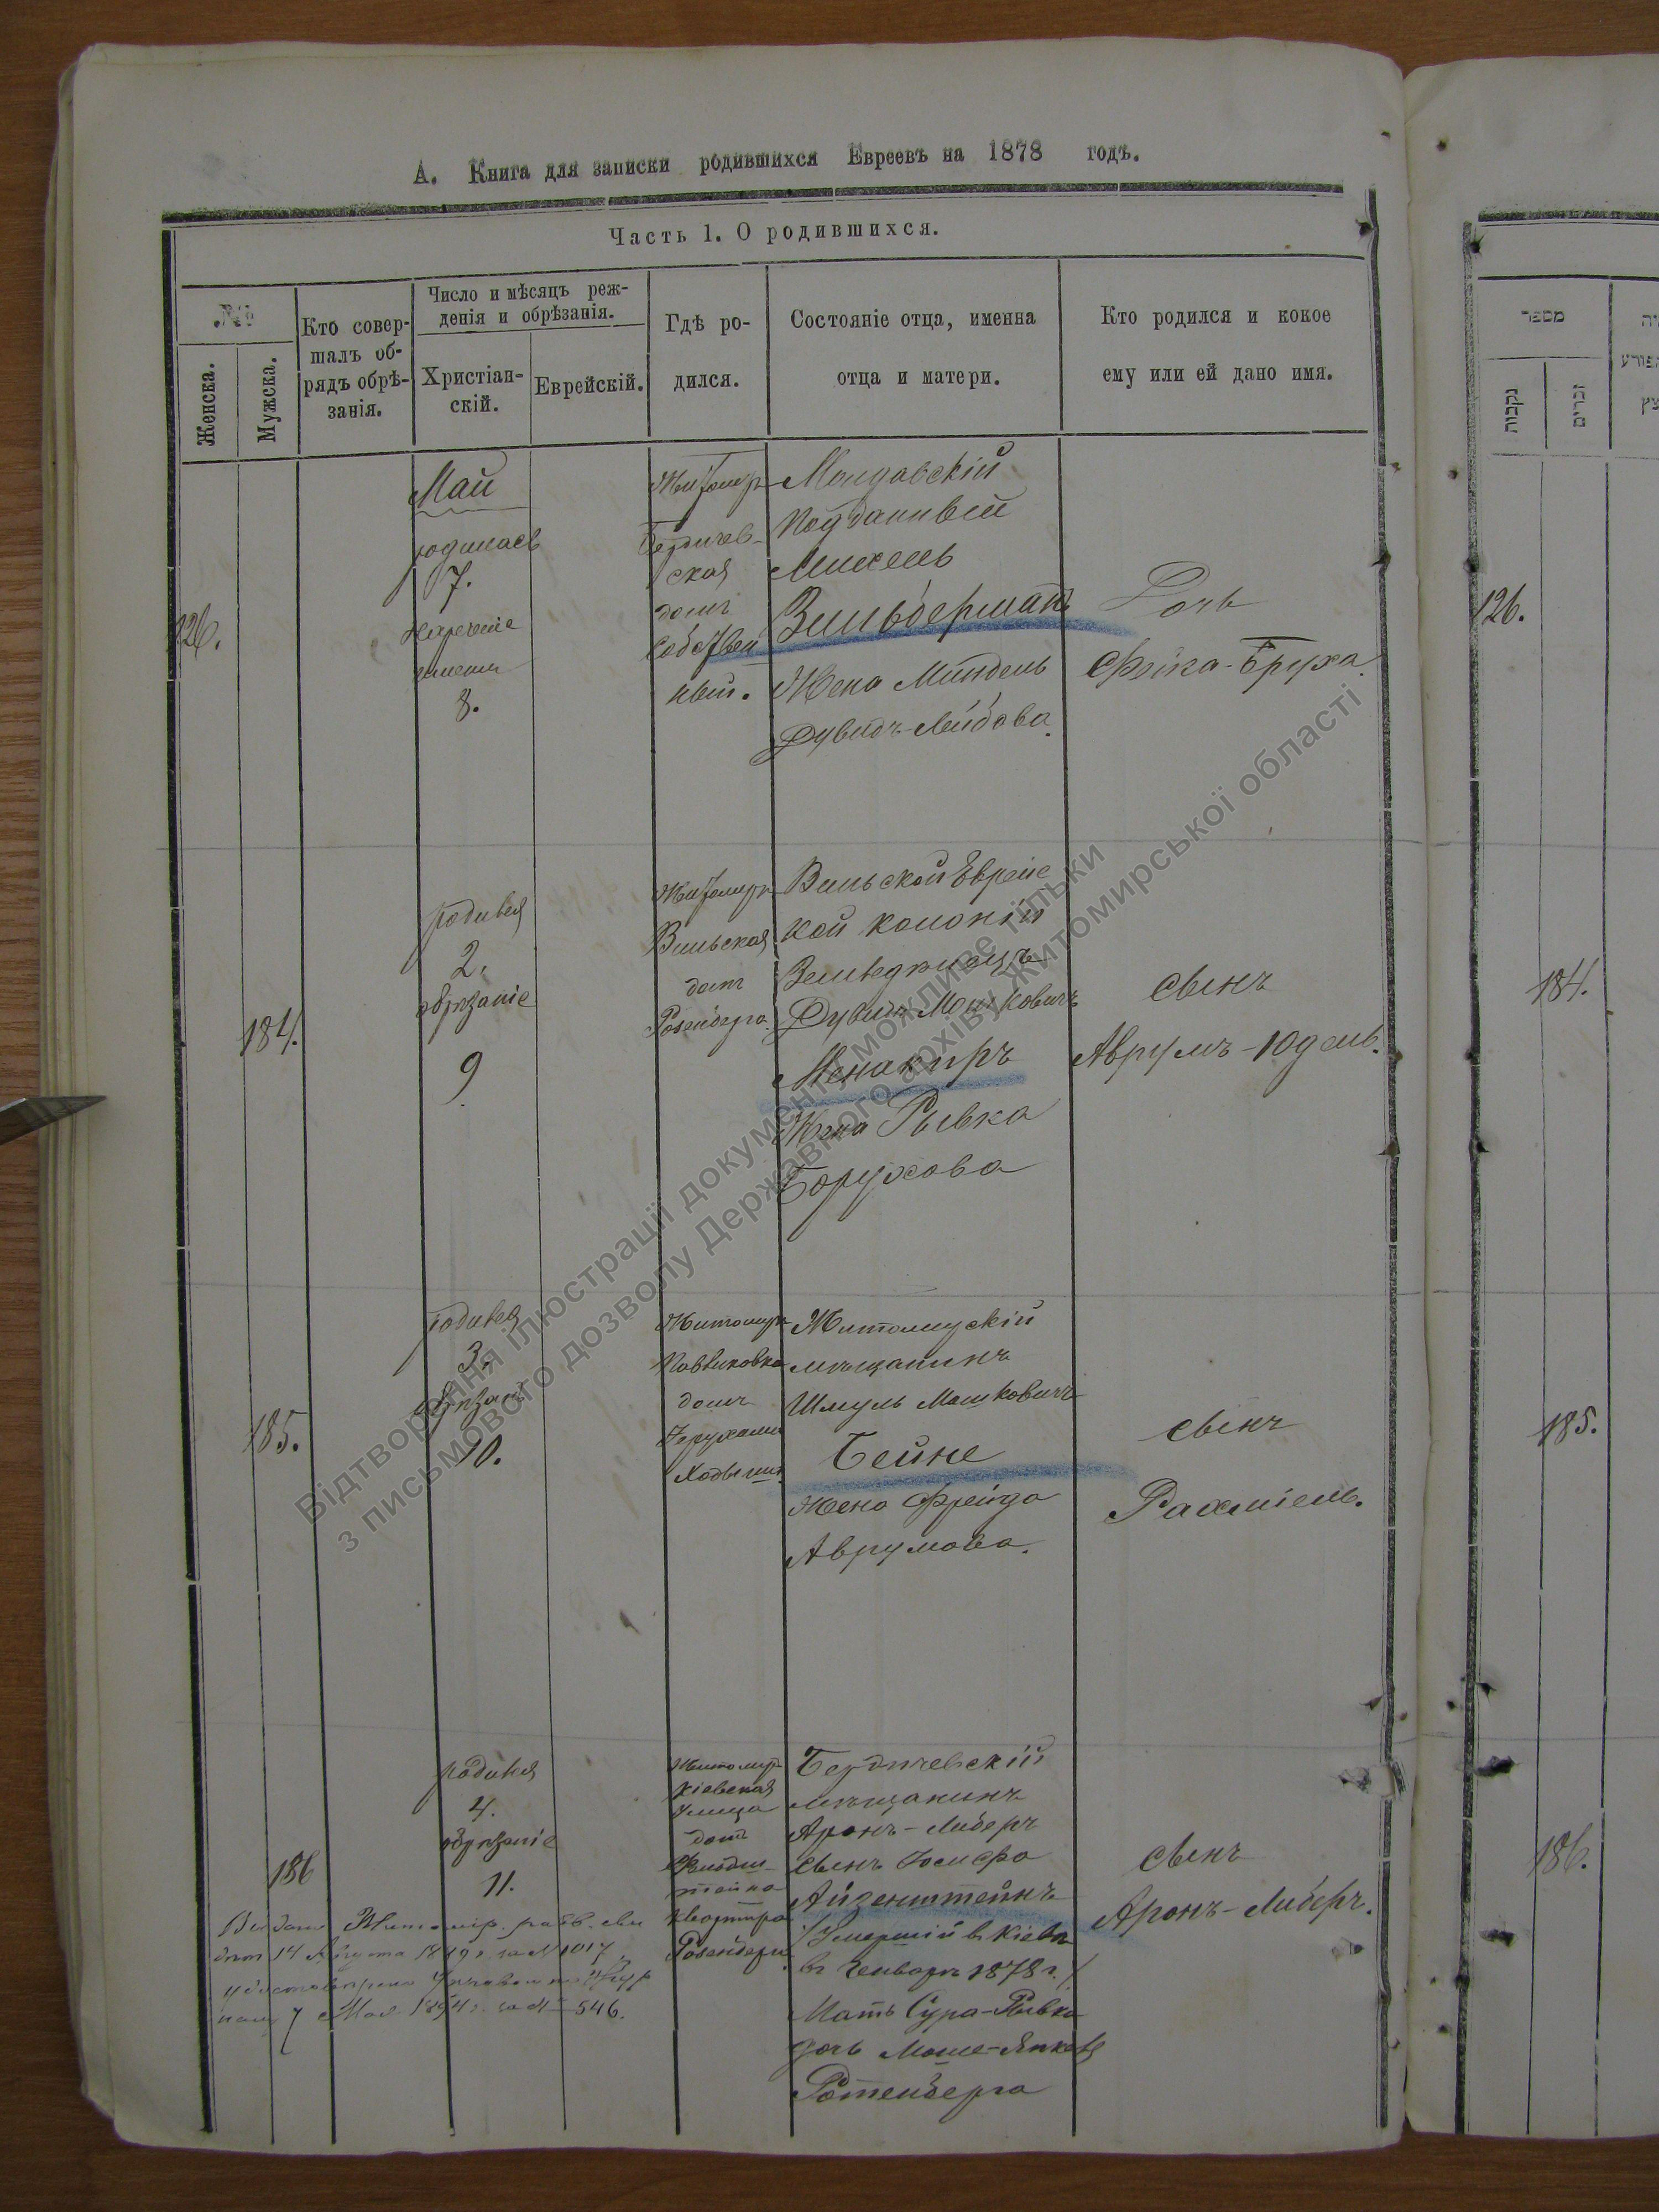 А. Книга для записки родившихся Евреевъ на 1878 годъ.
Часть 1. О родившихся.
№
Женска.
Мужска.
Кто совер-
шалъ об-
рядъ обрѣ-
занія.
Число и мѣсяцъ реж-
денія и обрѣзанія.
Христіан-
скій.
Еврейскій.
Гдѣ ро-
дился.
Состояніе отца, именна
отца и матери.
Кто родился и кокое
ему или ей дано имя.
126.
Май
родилась
7.
нареченіе
имени
8.
Житомир
Бердичев-
ская
домъ
Собствен
ный.
Молдавскій
Подданный
Михель
Зильберманъ
Жена Миндель
Дувидъ-Лейбова.
Дочь
Фейга-Бруха
184.
родился
2.
обрѣзаніе
9
Житомиръ
Вильская
домъ
Розенберга
Вильской Еврейс
кой колоніи
Земледѣлецъ
Дувидъ Мошковичъ
Менакиръ
Жена Рывка
Борухова
сынъ
Аврумъ-Юдель.
185.
родился
3.
обрѣзаніе
10.
Житомиръ
домъ
Житомирскій
мѣщанинъ
Шмуль Мошковичъ
Бейне
Жена Фрейда
Аврумова.
сынъ
Рахміель.
186
родился
4.
обрѣзаніе
11.
Житомир
Кіевская
улица
домъ
квартира
Розенберга
Бердичевскій
мѣщанинъ
Аронъ-Либеръ
сынъ Іосифа
Айзенштейнъ
/Умершій в Кіевѣ
въ Генварѣ 1878 г./
Мать Сура-Рывка
дочь Моше-Янкеля
Ротенберга
сынъ
Аронъ-Либеръ.
14 Августа
Мая
546.
מספר
נקבות
זכרים
126.
184.
185.
186.
Відтворення ілюстрації документа можливе тільки
з письмового дозволу Державного архіву Житомирської області